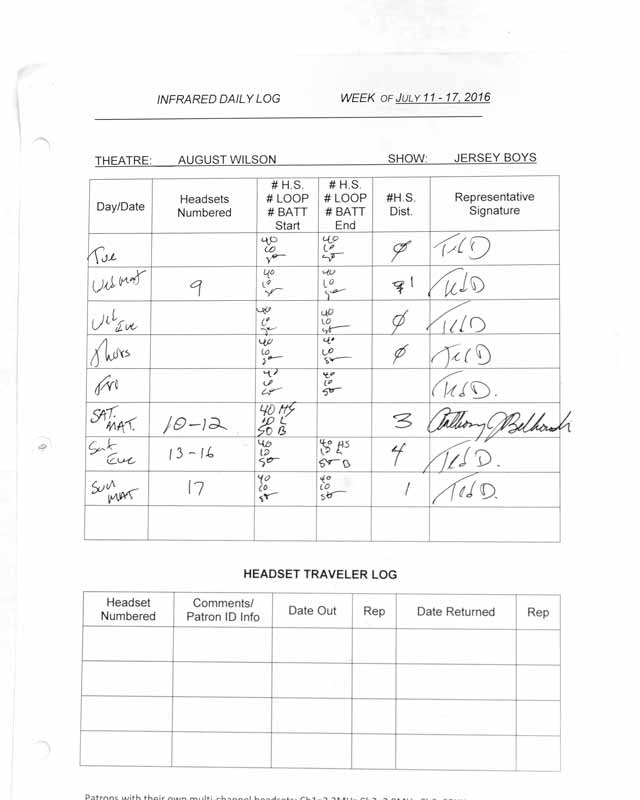 INFRARED DAILY LOG WEEK OF JULY 11 - 17, 2016
THEATRE: AUGUST WILSON SHOW: JERSEY BOYS
Day/Date Headsets Numbered # H.S. # LOOP # BATT Start # H.S. # LOOP # BATT End #H.S. Dist. Representative Signature
Tue 40 10 50 40 10 50 0 Ted D
Wed Mat 9 40 10 50 40 10 50 1 Ted D
Wed Eve 40 10 50 40 10 50 0 Ted D
Thurs 40 10 50 40 10 50 0 Ted D
Fri 40 10 50 40 10 50 Ted D.
SAT. MAT. 10-12 40 HS 10 L 50 B 3 Anthony J
Sat Eve 13-16 40 10 50 40 HS 10 L 50 B 4 Ted D.
Sun MAT 17 40 10 50 40 10 50 1 Ted D.
HEADSET TRAVELER LOG
Headset Numbered Comments/ Patron ID Info Date Out Rep Date Returned Rep
Patrons with their own multi-channel headsets: